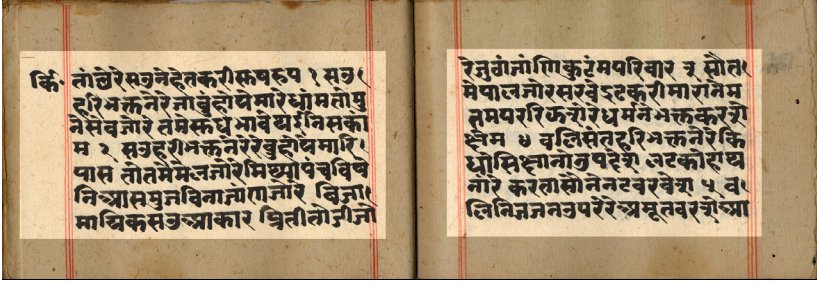 र्कि॰ तां छेरे सउने हेत करी रूप १ सउ
हरि भक्तने रे जावुं होय मारे धांम तो मु
ने सेवजो रे तमे भावे थइ निसकां
म २ सउ हरी भक्तने रे रेवु होये मारि
पास तो तमे मेलजो रे मिथ्या पंच विषे
नि आस मुज विना जांणजो रे बिजा
मायिक सउ आकार प्रिती तोडीजो
रे जुगं जांणि कुटंम परिवार ३ सौ त
मे पालजो रे सरवे द्रढ करी मारा नेम
तम पर रिझशे रे धरम ने भक्त करशे
क्षेम ४ वलि संत हरि भक्तने रे
शिक्षानो उपदेश लटकां हाथ
नां रे करता सौने नटवर वेश ५ व
लि निज जन उपर रे अमृत वरशे आ